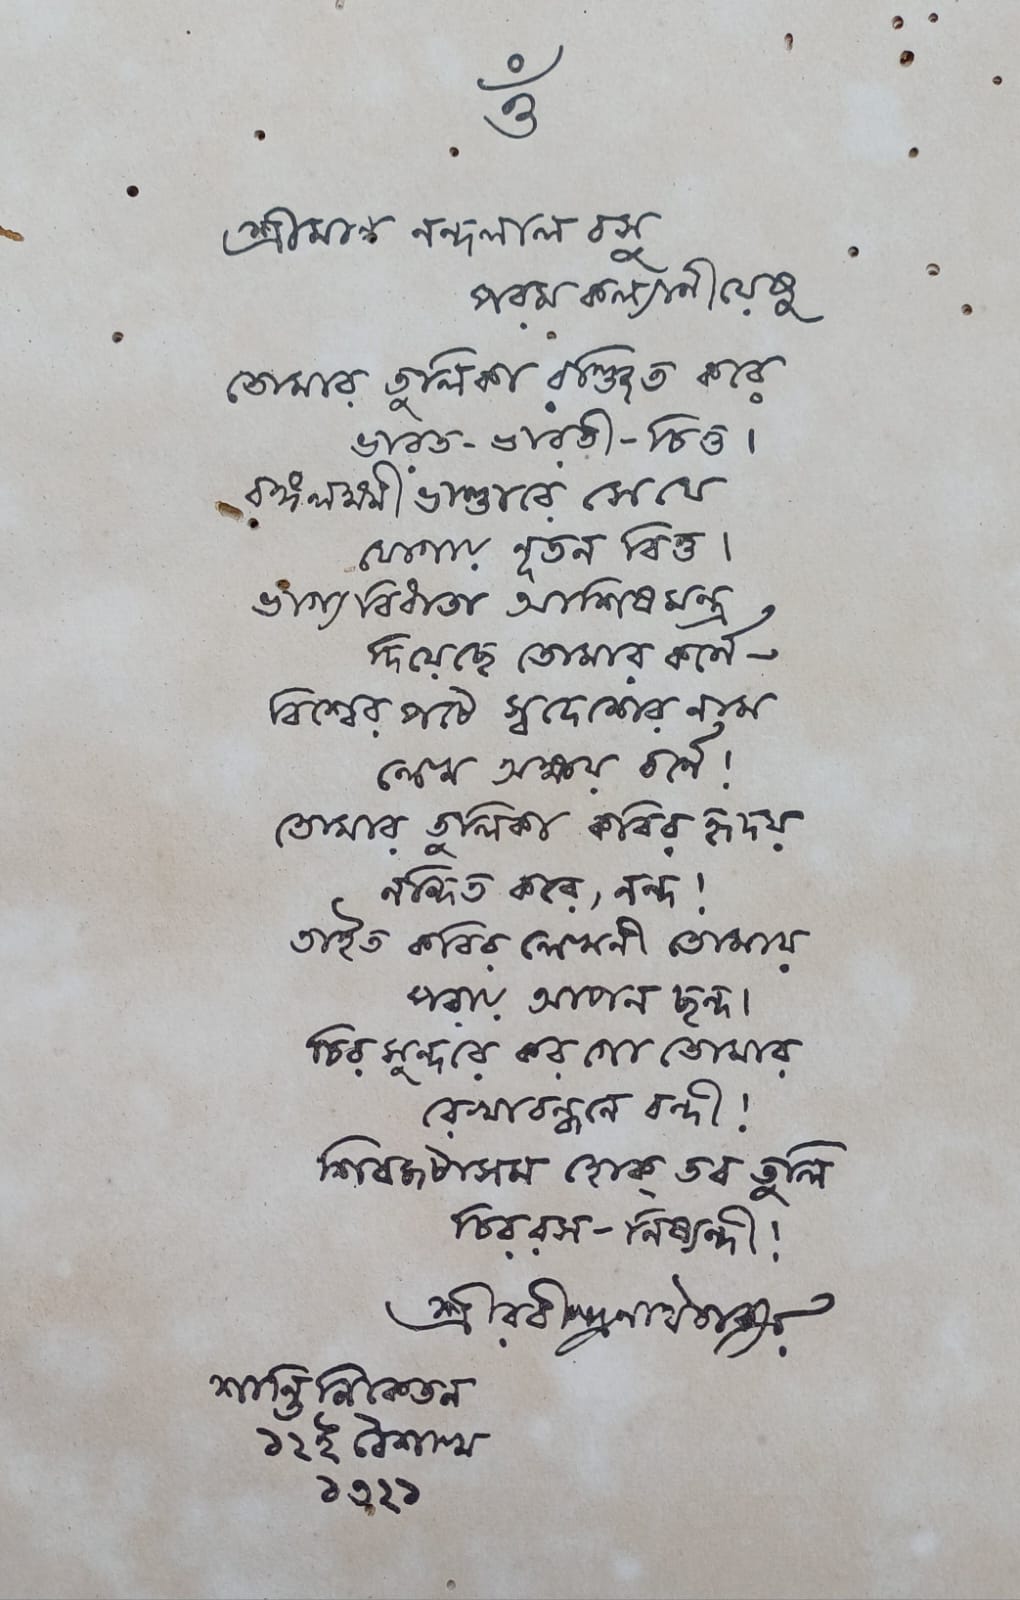 ওঁ
শ্রীমান নন্দলাল বসু
পরম কল্যাণীয়েষু
তোমার তুলিকা রঞ্জিত করে
ভারত-ভারতী-চিত্ত।
বঙ্গলক্ষ্মী ভাণ্ডারে সে যে
যোগায় নূতন বিত্ত।
ভাগ্যবিধাতা আশিষমন্ত্র
দিয়েছে তোমার কর্ণে–
বিশ্বের পটে স্বদেশের নাম
লেখ অক্ষয় বর্ণে!
তোমার তুলিকা কবির হৃদয়
নন্দিত করে, নন্দ!
তাইত কবির লেখনী তোমায়
পরায় আপন ছন্দ।
চিরসুন্দরে কর গো তোমার
রেখাবন্ধনে বন্দী!
শিবজটাসম হোক্ তব তুলি
চিররস-নিষ্যন্দী!
শ্রীরবীন্দ্রনাথ ঠাকুর
শান্তিনিকেতন
১২ই বৈশাখ
১৩২১